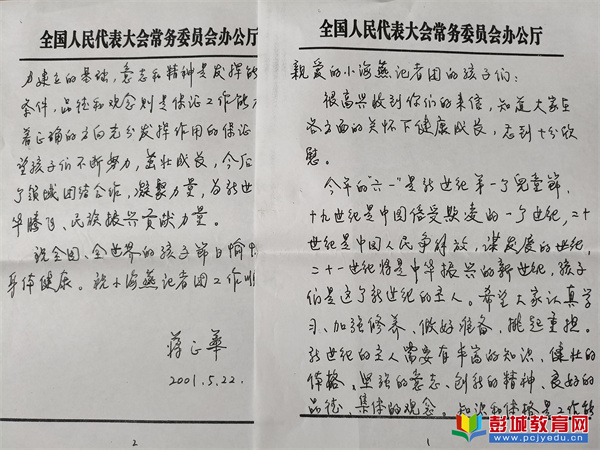 全国人民代表大会常务委员会办公厅
親爱的小海燕记者团的孩子们：
很高兴收到你们的来信，知道大家在
各方面的关怀下健康成长，感到十分欣
慰。
今年的“六一”是新世纪第一个儿童節，
十九世纪是中国倍受欺凌的一个世纪，二十
世纪是中国人民争解放，谋发展的世纪，
二十一世纪将是中华振兴的新世纪，孩子
们是这个新世纪的主人。希望大家认真学
习、加强修养、做好准备，挑起重担。
新世纪的主人需要有丰富的知识、健壮的
体格、坚强的意志、创新的精神、良好的
品德、集体的观念。知识和体格是工作能
1
全国人民代表大会常务委员会办公厅
力建立的基础，意志和精神是发挥能
条件，品德和观念则是保证工作能力
着正确的方向充分发挥作用的保证
望孩子们不断努力，茁壮成长，今后
个领域团结合作，凝聚力量，为新世
华腾飞、民族振兴贡献力量。
祝全国、全世界的孩子節日愉快
身体健康。祝小海燕记者团工作顺
蒋正華
2001.5.22.
2
彭城教育网
www.pcjyedu.cn